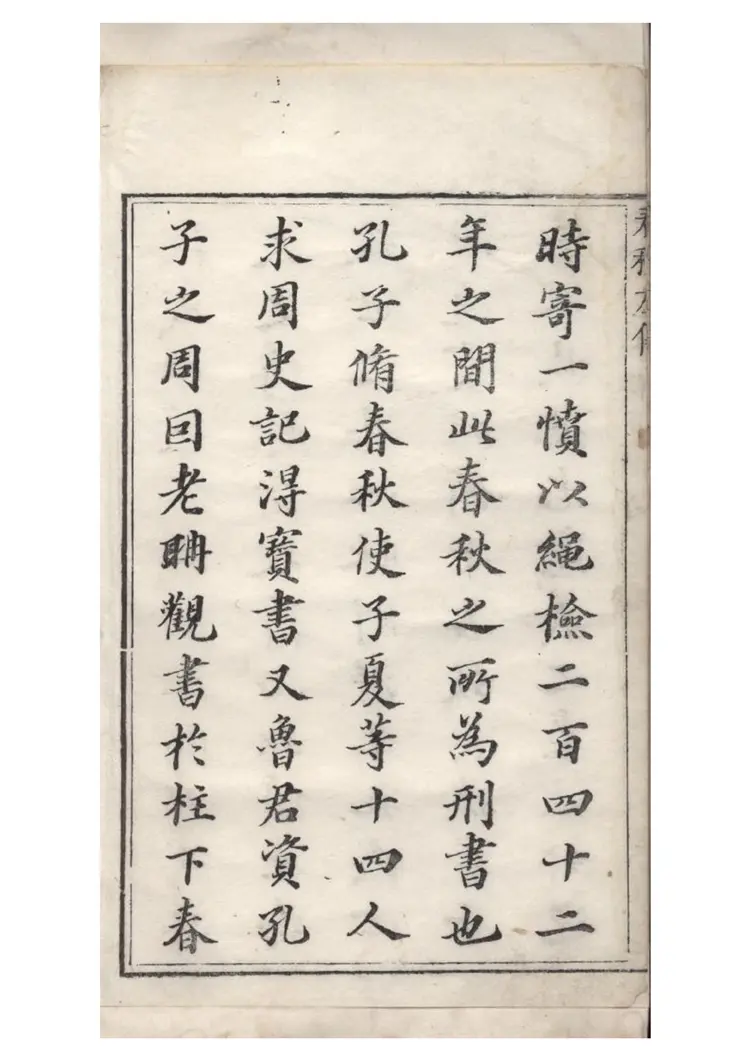 春秋
時寄一憤以繩檢二百四十二
年之間此春秋之所為刑書也
孔子脩春秋使子夏等十四人
求周史記淂寶書又魯君資孔
子之周囙老聃觀書扵柱下春